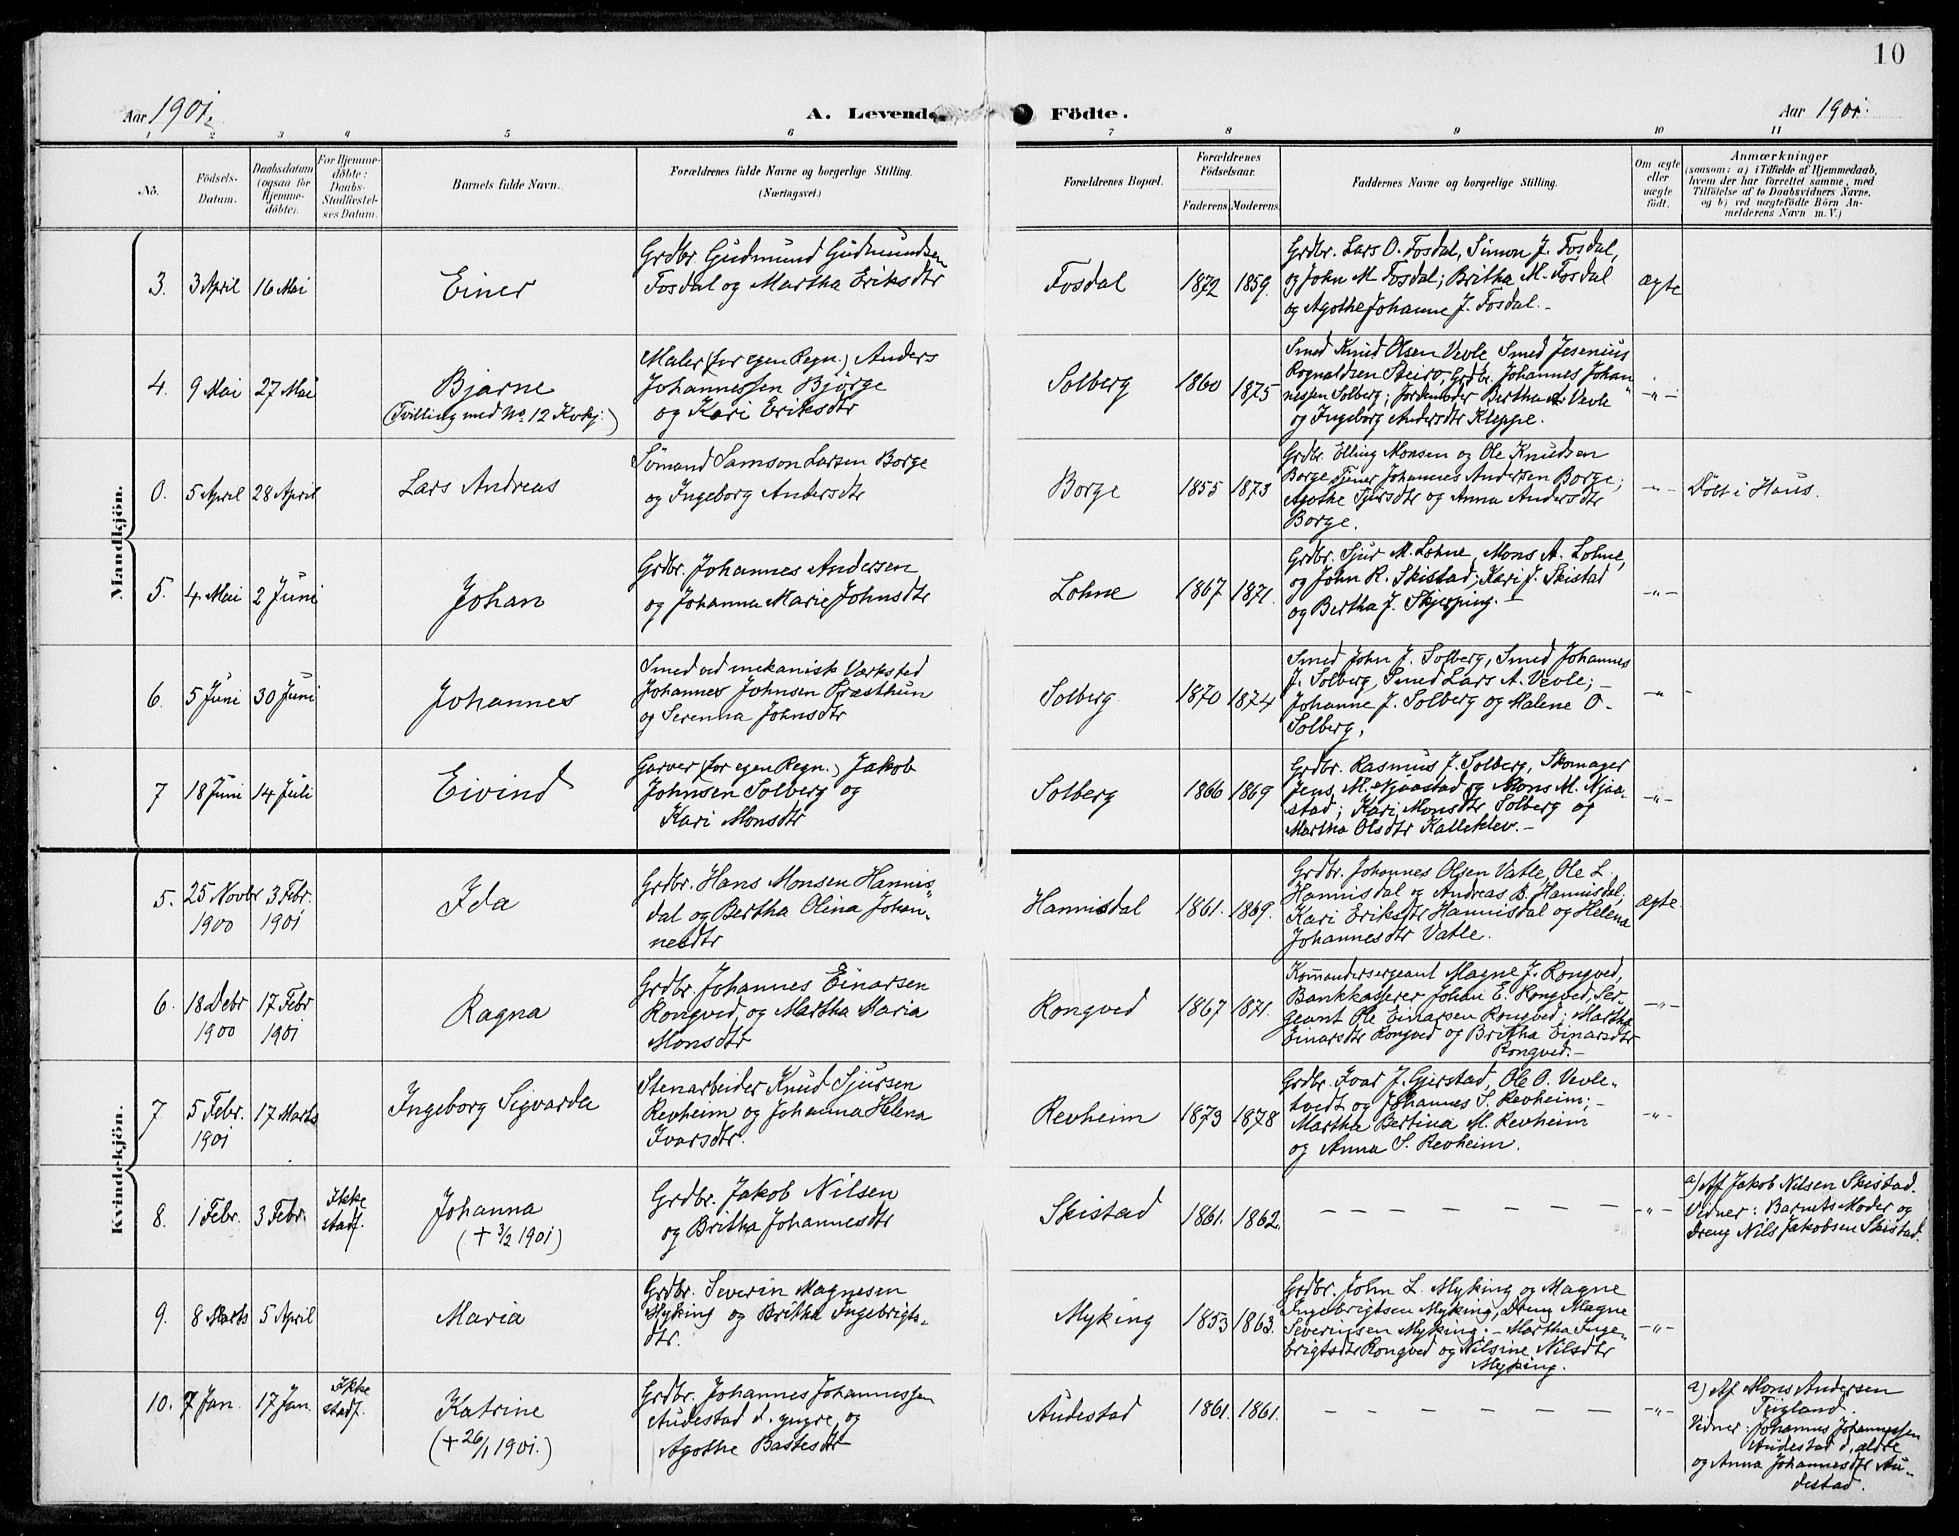 10
Aar 1901.
A. Levende Födte.
Aar 1901.
1 2 3 4 5 6 7 8 9 10 11
No.
Födsels-
Datum.
Daabsdatum
(ogsaa for
Hjemme-
döbte).
For Hjemme-
döbte:
Daabs-
Stadfæstel-
ses Datum.
Barnets fulde Navn.
Forældrenes fulde Navne og borgerlige Stilling.
(Næringsvei.)
Forældrenes Bopæl.
Forældrenes
Födselsaar.
Faderens. Moderens.
Faddernes Navne og borgerlige Stilling.
Om ægte
eller
uægte
födt.
Anmærkninger
(saasom: a) i Tilfælde af Hjemmedaab,
hvem der har forrettet samme, med
Tilföielse af to Daabsvidners Navne,
og b) ved uægtefödte Börn An-
melderens Navn m. V.)
Mandkjön.
3. 3 April 16 Mai
Einer
Grdbr. Gudmund Gudmundsen
Fosdal og Martha Eriksdtr
Fosdal
1872 1859.
Grdbr. Lars O. Fosdal, Simon J. Fosdal,
og John M. Fosdal; Britha M. Fosdal
og Agothe Johanne J. Fosdal.-
ægte
4. 9 Mai 27 Mai
Bjarne
(Tvilling med No. 12 Kvkj.)
Maler (for egen Regn.) Anders
Johannessen Bjørge
og Kari Eriksdtr
Solberg
1860 1875
Smed Knud Olsen Vevle, Smed Jesenius
Rognaldsen Steiro, Grdbr. Johannes Johan
nessen Solberg; Jordemoder Bertha A. Vevle
og Ingeborg Andersdtr Kleppe.
-"-
0. 5 April 28 April
Lars Andreas
Sømand Samson Larsen Borge
og Ingeborg Andersdtr
Borge
1855 1873
Grdbr. Elling Monsen og Ole Knudsen
Borge, Tjener Johannes Andersen Borge;
Agothe Sjursdtr og Anna Andersdtr
Borge.
-"-
Døbt i Haus.
5. 4 Mai 2 Juni
Johan
Grdbr. Johannes Andersen
og Johanna Marie Johnsdtr
Lohne
1867 1871.
Grdbr. Sjur M. Lohne, Mons A. Lohne,
og John R. Skistad; Kari J. Skistad
og Bertha J. Skjerping.-
-"-
6. 5 Juni 30 Juni
Johannes
Smed ved mekanisk Værksted
Johannes Johnsen Præsthun
og Serenna Johnsdtr
Solberg
1870 1874
Smed John J. Solberg, Smed Johannes
J. Solberg, Smed Lars A. Vevle;-
Johanne J. Solberg og Malene O-
Solberg.
-"-
7 18 Juni 14 Juli
Eivind
Garver (for egen Regn.) Jakob
Johnsen Solberg og
Kari Monsdtr
Solberg
1866 1869
Grdbr. Rasmus J. Solberg, Skomager
Jens M. Njaastad og Mons M. Njaa-
stad; Kari Monsdtr Solberg og
Martha Olsdtr Kalleklev.-
-"-
Kvindekjön.
5. 25 Novbr 3 Febr.
1900 1901
Ida
Grdbr. Hans Monsen Hannis-
dal og Bertha Olina Johan-
nesdtr
Hannisdal
1861. 1869.
Grdbr. Johannes Olsen Vatle, Ole L.
Hannisdal og Andreas B. Hannisdal,
Kari Eriksdtr Hannisdal og Helena
Johannesdtr Vatle.
ægte
6. 18 Debr 17 Febr
1900 1901
Ragna
Grdbr. Johannes Einarsen
Rongved, og Martha Maria
Monsdtr
Rongved
1867 1871.
Komandersergeant Magne J. Rongved,
Bankkasserer Johan E. Rongved, Ser-
geant Ole Einarsen Rongved; Martha
Einarsdtr Rongved og Britha Einarsdtr
Rongved.-
-"-
7 5 Febr. 17 Marts
1901
Ingeborg Sigvarda
Stenarbeider Knud Sjursen
Revheim og Johanna Helena
Ivarsdtr.
Revheim
1873 1878
Grdbr. Ivar J. Gjerstad, Ole O. Vevle-
tvedt og Johannes S. Revheim;-
Martha Bertina M. Revheim
og Anna S. Revheim.
-"-
8. 1 Febr. 3 Febr. Ikke
stadf.
Johanna
(+ 3/2 1901)
Grdbr. Jakob Nilsen
og Britha Johannesdtr
Skistad
1861. 1862.
- - - - - - -
-"-
a) Af Jakob Nilsen Skistad.
Vidner: Barnets Moder og
Dreng Nils Jakobsen Skistad.
9. 8 Marts 5 April
Maria
Grdbr. Severin Magnesen
Myking og Britha Ingebrigts-
dtr.
Myking
1853 1863.
Grdbr. John L. Myking og Magne
Ingebrigtsen Myking, Dreng Magne
Severinsen Myking;- Martha Inge-
brigtsdtr Rongved og Nilsine Nilsdtr
Myking.
-"-
10. 7 Jan. 17 Jan. Ikke
stadf.
Katrine
(+ 26/1 1901.)
Grdbr. Johannes Johannessen
Audestad d. yngre, og
Agothe Bastesdtr
Audestad
1861. 1861.
- - - - - - -
-"-
a) Af Mons Andersen
Vidner: Johannes Johannessen
Audestad d. ældre
og Anna Johannesdtr Au-
destad.